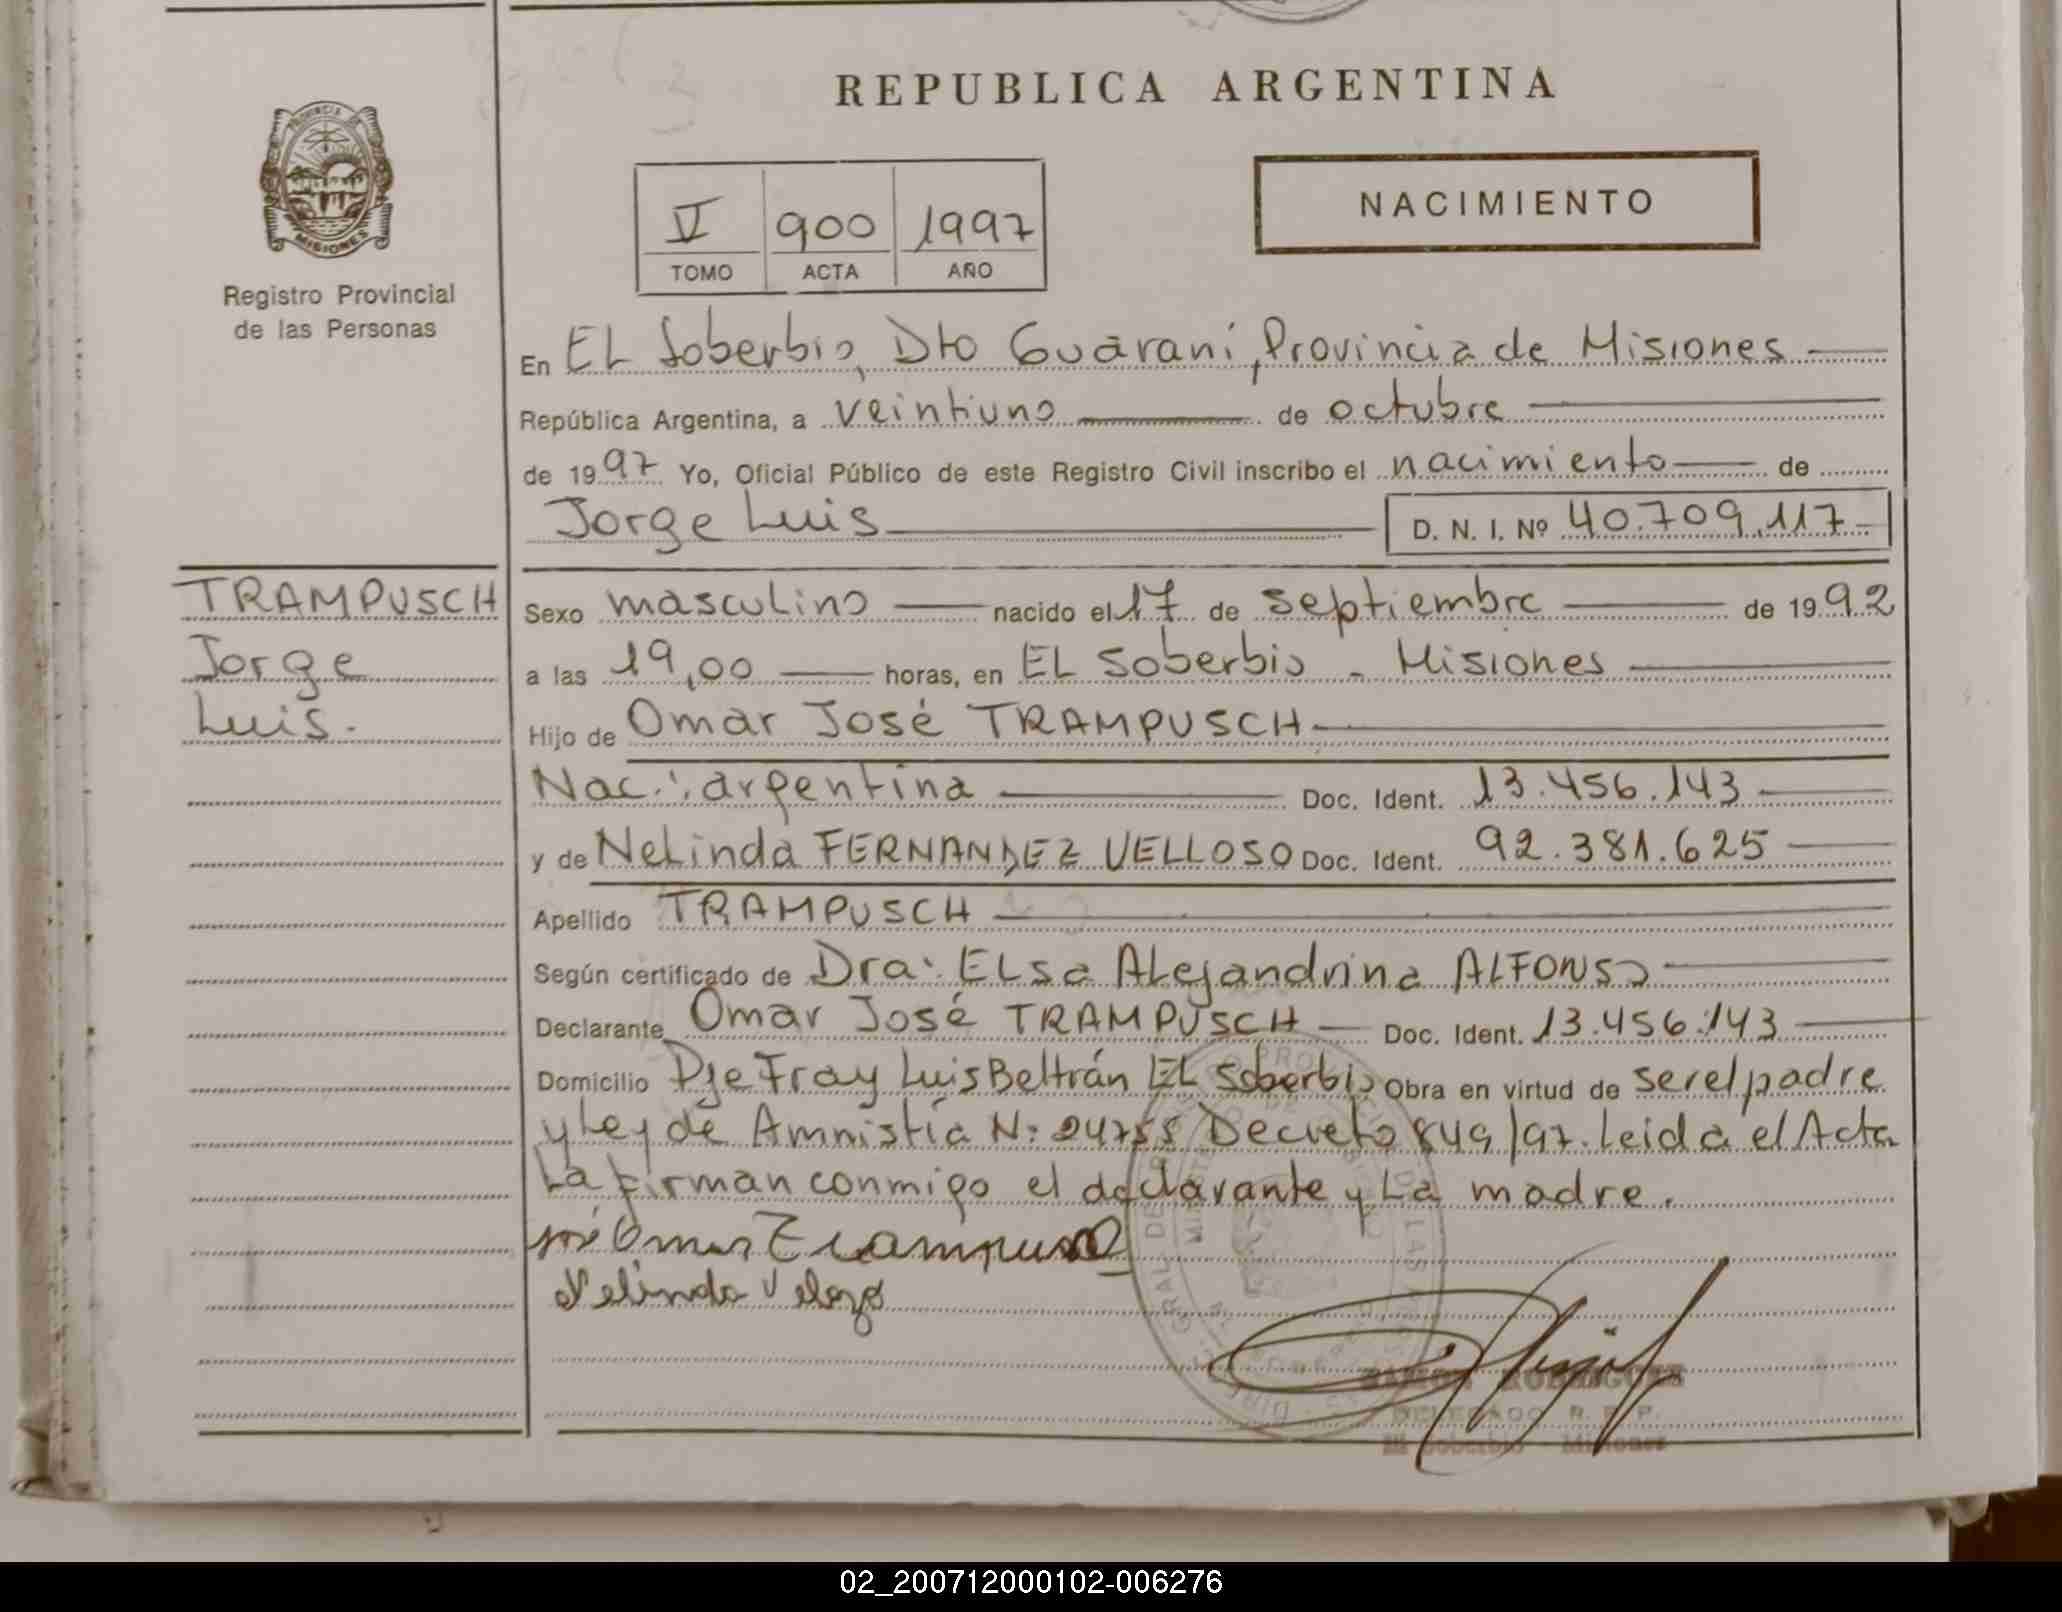 REPUBLICA ARGENTINA
PROVINCIA DE
MISIONES
Registro Provincial
de las Personas
V 900 1997
TOMO ACTA AÑO
NACIMIENTO
En EL Soberbio, Dto Guaraní, Provincia de Misiones
República Argentina, a veintiuno de octubre
de 1997 Yo, Oficial Público de este Registro Civil inscribo el nacimiento de
Jorge Luis D. N. I. Nº 40.709.117
TRAMPUSCH
Jorge
Luis.
Sexo masculino nacido el 17 de septiembre de 1992
a las 19,00 horas, en EL Soberbio - Misiones
Hijo de Omar José TRAMPUSCH
Nac.: argentina Doc. Ident. 13.456.143
y de Nelinda FERNANDEZ VELLOSO Doc. Ident. 92.381.625
Apellido TRAMPUSCH
Según certificado de Dra: ELsa ALejandrina ALFONSO
Declarante Omar José TRAMPUSCH Doc. Ident. 13.456.143
Domicilio Pje Fray Luis Beltrán EL Soberbio Obra en virtud de ser el padre
y Ley de Amnistía N: 24755 Decreto 849/97. Leida el Acta
La firman conmigo el declarante y La madre.
José Omar Trampusch
Nelinda Velozo
RAMON RODRIGUEZ
DELEGADO R. P. P.
El Soberbio - Misiones
02_200712000102-006276